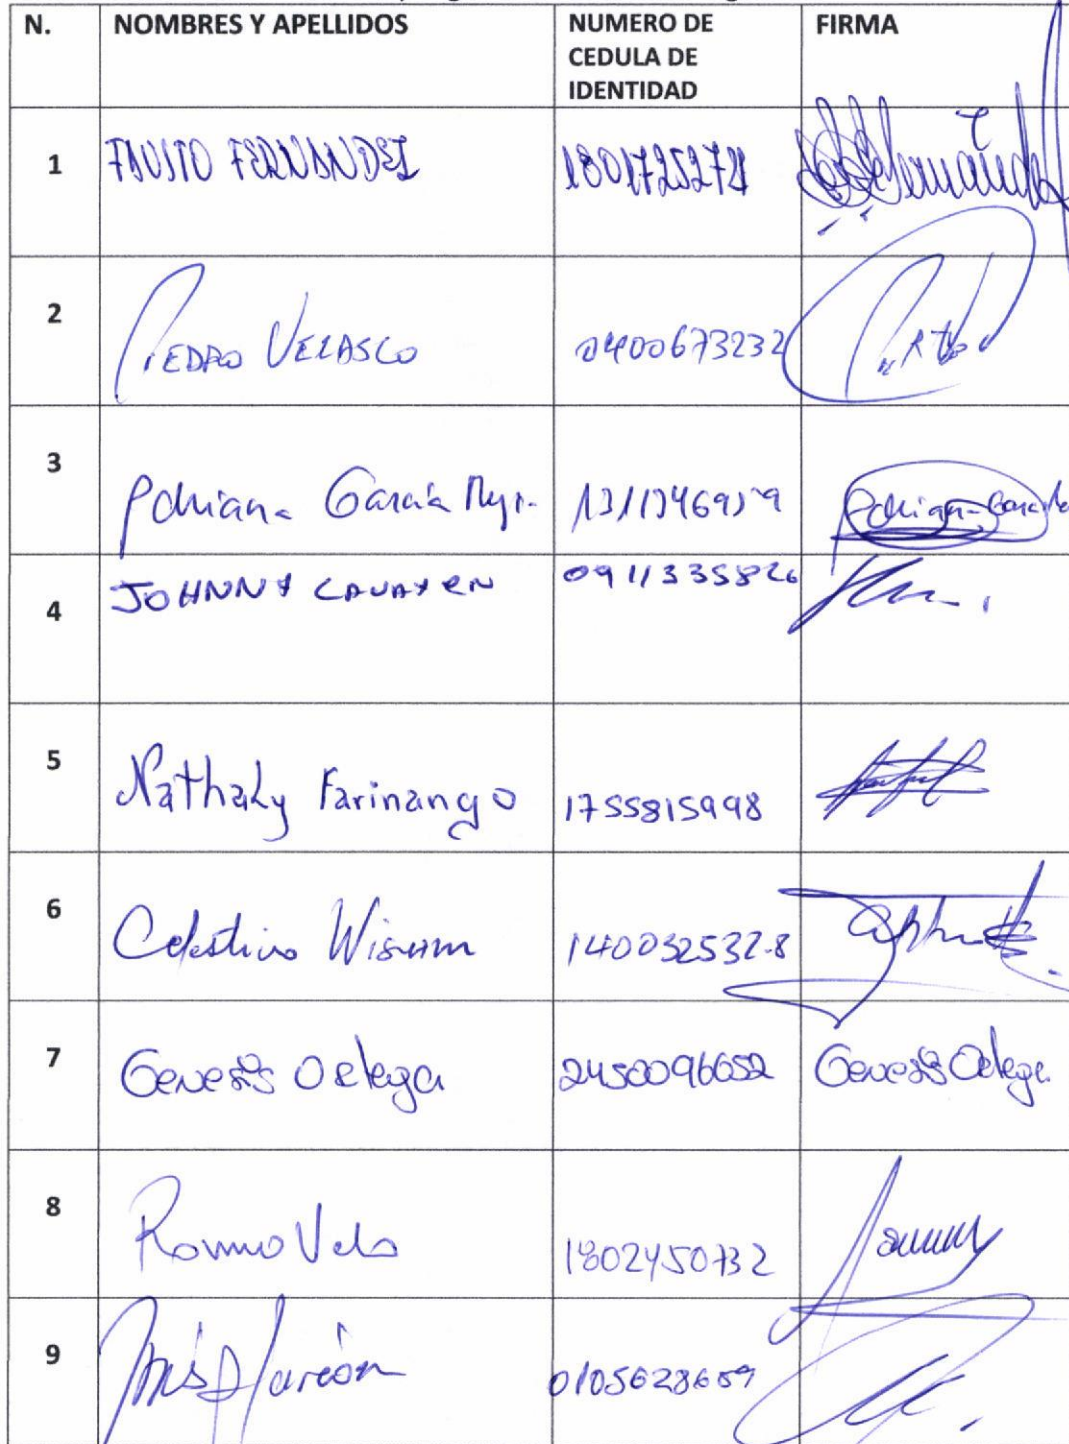 N. NOMBRES Y APELLIDOS NUMERO DE CEDULA DE IDENTIDAD FIRMA
1 FAUSTO FERNANDEZ Fernandez
2 PEDRO VELASCO 0400673232
3 Adriana García Adriana García
4 JOHNNY 0911335826
5 Nathaly Farinango 1755815998
6 Celestino Wisum 140032532-8
7 Genesis Ortega 2450096652 Genesis Ortega
8 Romo Vela 1802450732
9 Inés Alarcón 0105628659